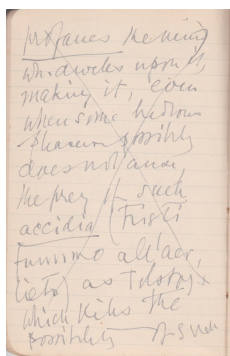 profanes the mind
who dwells upon it,
making it, even
when some hideous
possibly
does not
the prey of such
accidia (Tristi
fummo all'aer
as Tolstoy
which kills the
possibility of such